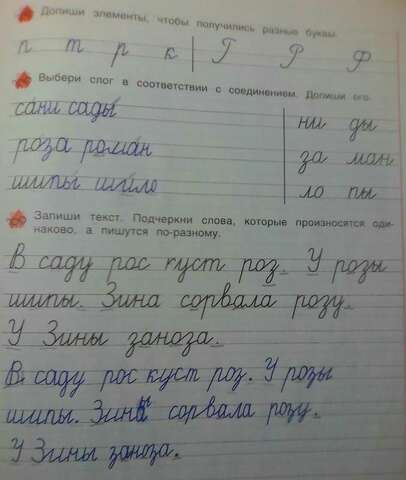 Допиши элементы, чтобы получились разные буквы.
п т р к Г Р Ф
Выбери слог в соответствии с соединением. Допиши его.
са́ни сады́ ни ды
ро́за рома́н за ман
шипы́ ши́ло ло пы
Запиши текст. Подчеркни слова, которые произносятся оди-
наково, а пишутся по-разному.
В саду рос куст роз. У розы
шипы. Зина сорвала розу.
У Зины заноза.
В саду рос куст роз. У розы
шипы. Зина сорвала розу.
У Зины заноза.